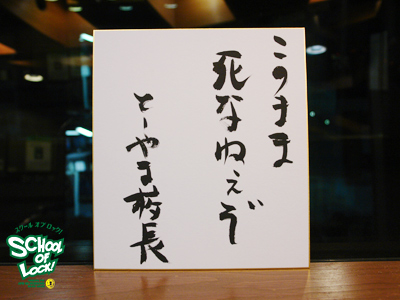 このまま
死なねぇぞ
とーやま校長
スクール オブ ロック!
SCHOOL
OF
LOCK!